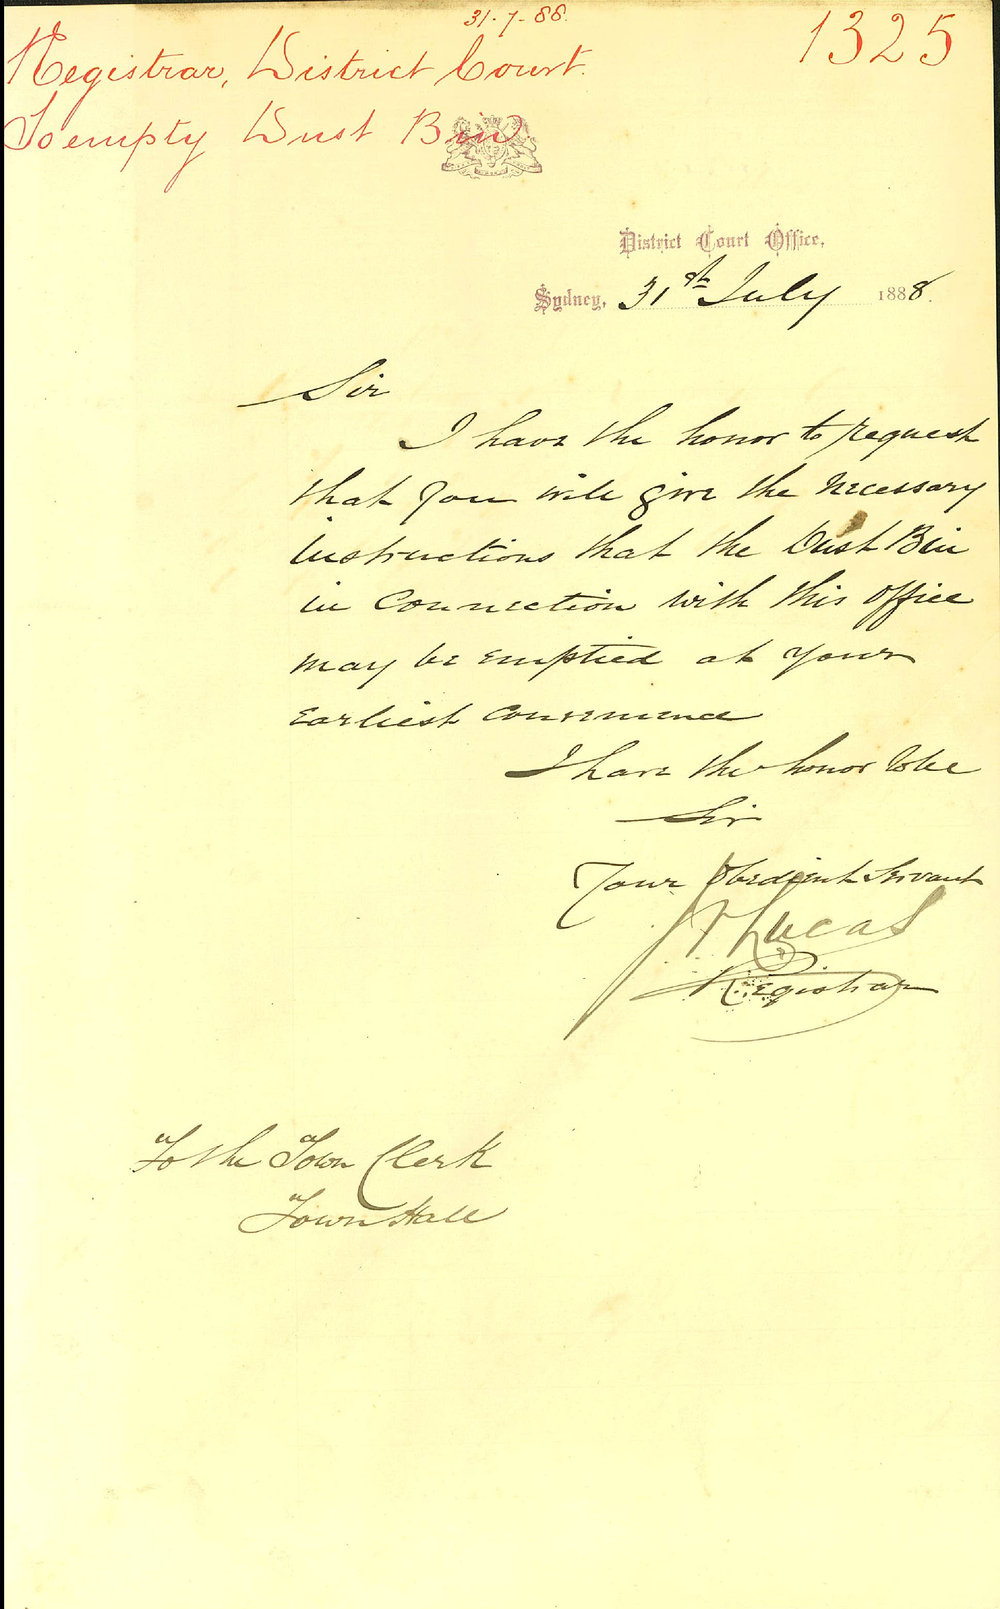 31-7-88.
1325
Registrar, District Court.
To empty Dust Bin
District Court Office,
Sydney, 31st July 1888.
Sir
I have the honor to request
that you will give the necessary
instructions that the Dust Bin
in connection with this office
may be emptied at your
earliest convenience
I have the honor to be
Sir
Your Obedient Servant
Lucas
Registrar
To the Town Clerk
Town Hall